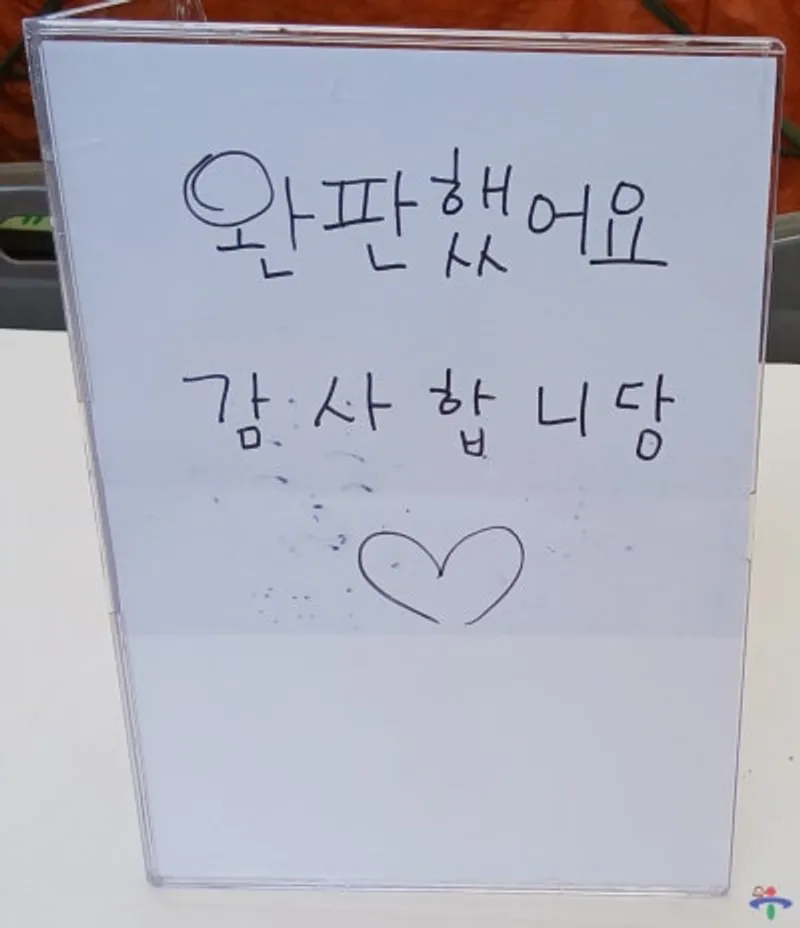 완판했어요
감사합니당